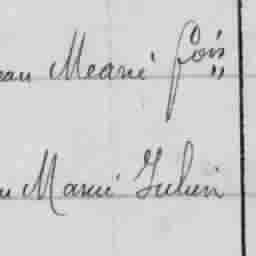 eau Mearié fois "
u Marié Julien